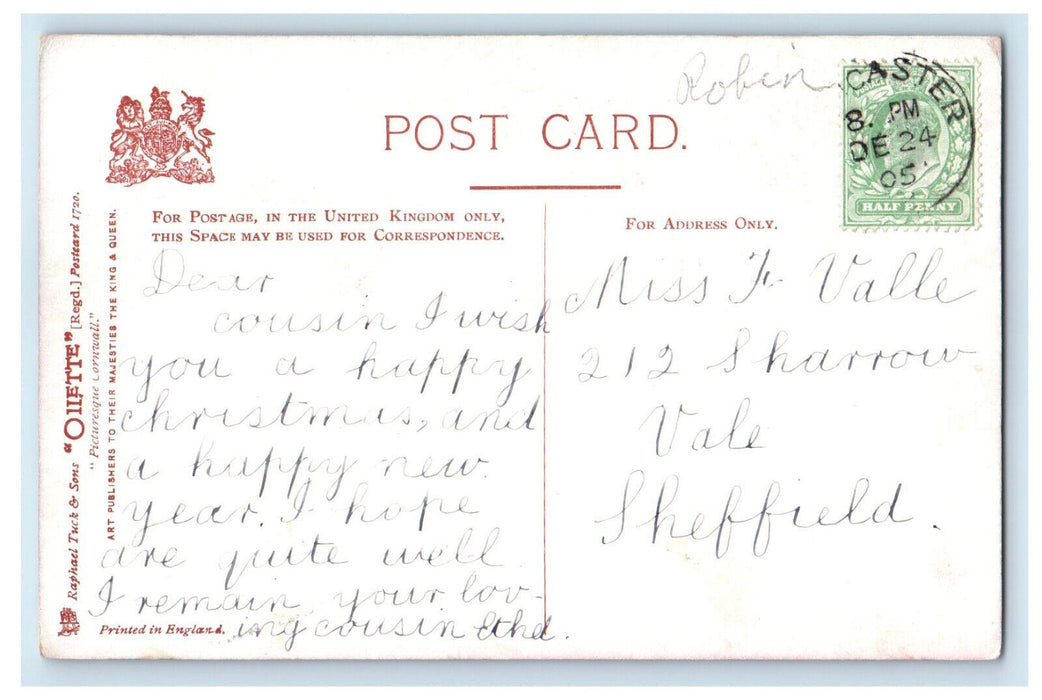 Robin
CASTER
8. PM
DE 24
05
HALF PENNY
POST CARD.
FOR POSTAGE, IN THE UNITED KINGDOM ONLY,
THIS SPACE MAY BE USED FOR CORRESPONDENCE.
FOR ADDRESS ONLY.
Dear
cousin I wish
you a happy
christmas, and
a happy new
year. I hope
are quite well
I remain your lov-
ing cousin Ethel.
Miss F Valle
212 Sharrow
Vale
Sheffield.
Raphael Tuck & Sons "OILETTE" [Regd.] Postcard 1720.
"Picturesque Cornwall."
ART PUBLISHERS TO THEIR MAJESTIES THE KING & QUEEN.
Printed in England.